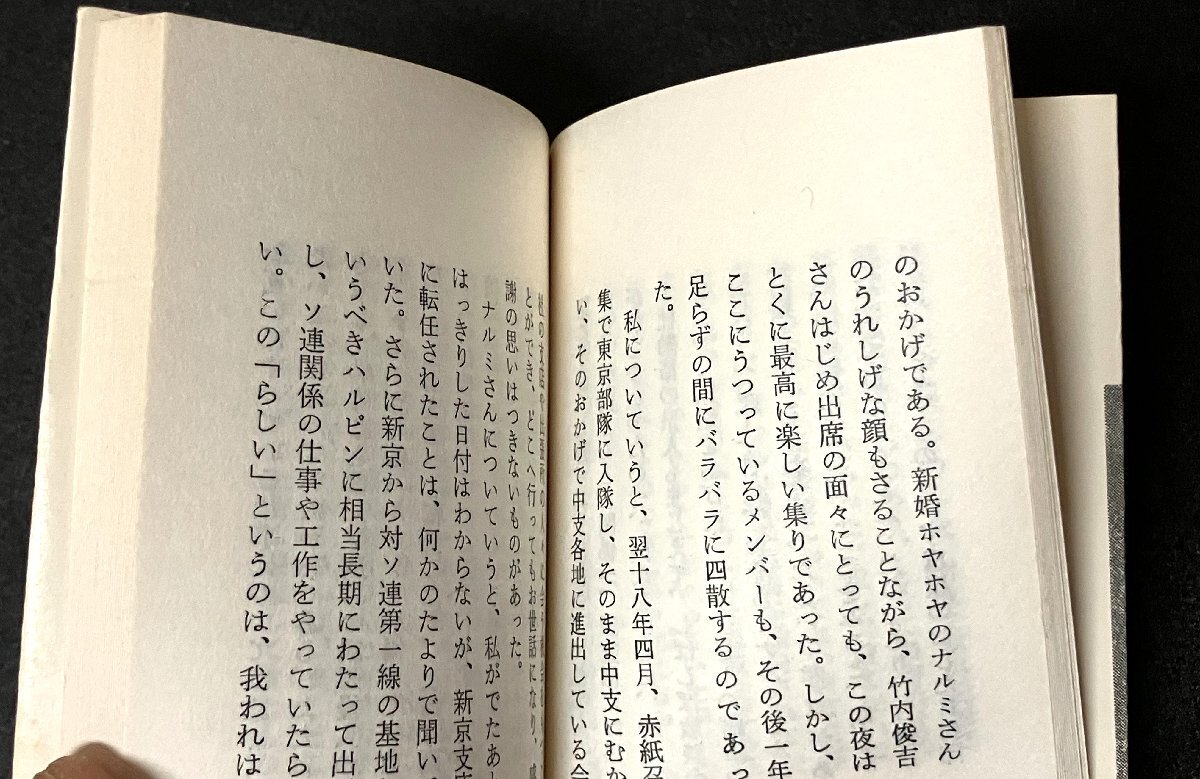 のおかげである。新婚ホヤホヤのナルミさん
のうれしげな顔もさることながら、竹内俊吉
さんはじめ出席の面々にとっても、この夜は
とくに最高に楽しい集りであった。しかし、
ここにうつっているメンバーも、その後一年
足らずの間にバラバラに四散するのであっ
た。
私についていうと、翌十八年四月、赤紙召
集で東京部隊に入隊し、そのまま中支にむか
い、そのおかげで中支各地に進出している会
とができ、どこへ行ってもお世話になり、感
謝の思いはつきないものがあった。
ナルミさんについていうと、私がでたあ
はっきりした日付はわからないが、新京支
に転任されたことは、何かのたよりで聞い
いた。さらに新京から対ソ連第一線の基地
いうべきハルピンに相当長期にわたって出
し、ソ連関係の仕事や工作をやっていたら
い。この「らしい」というのは、我われは